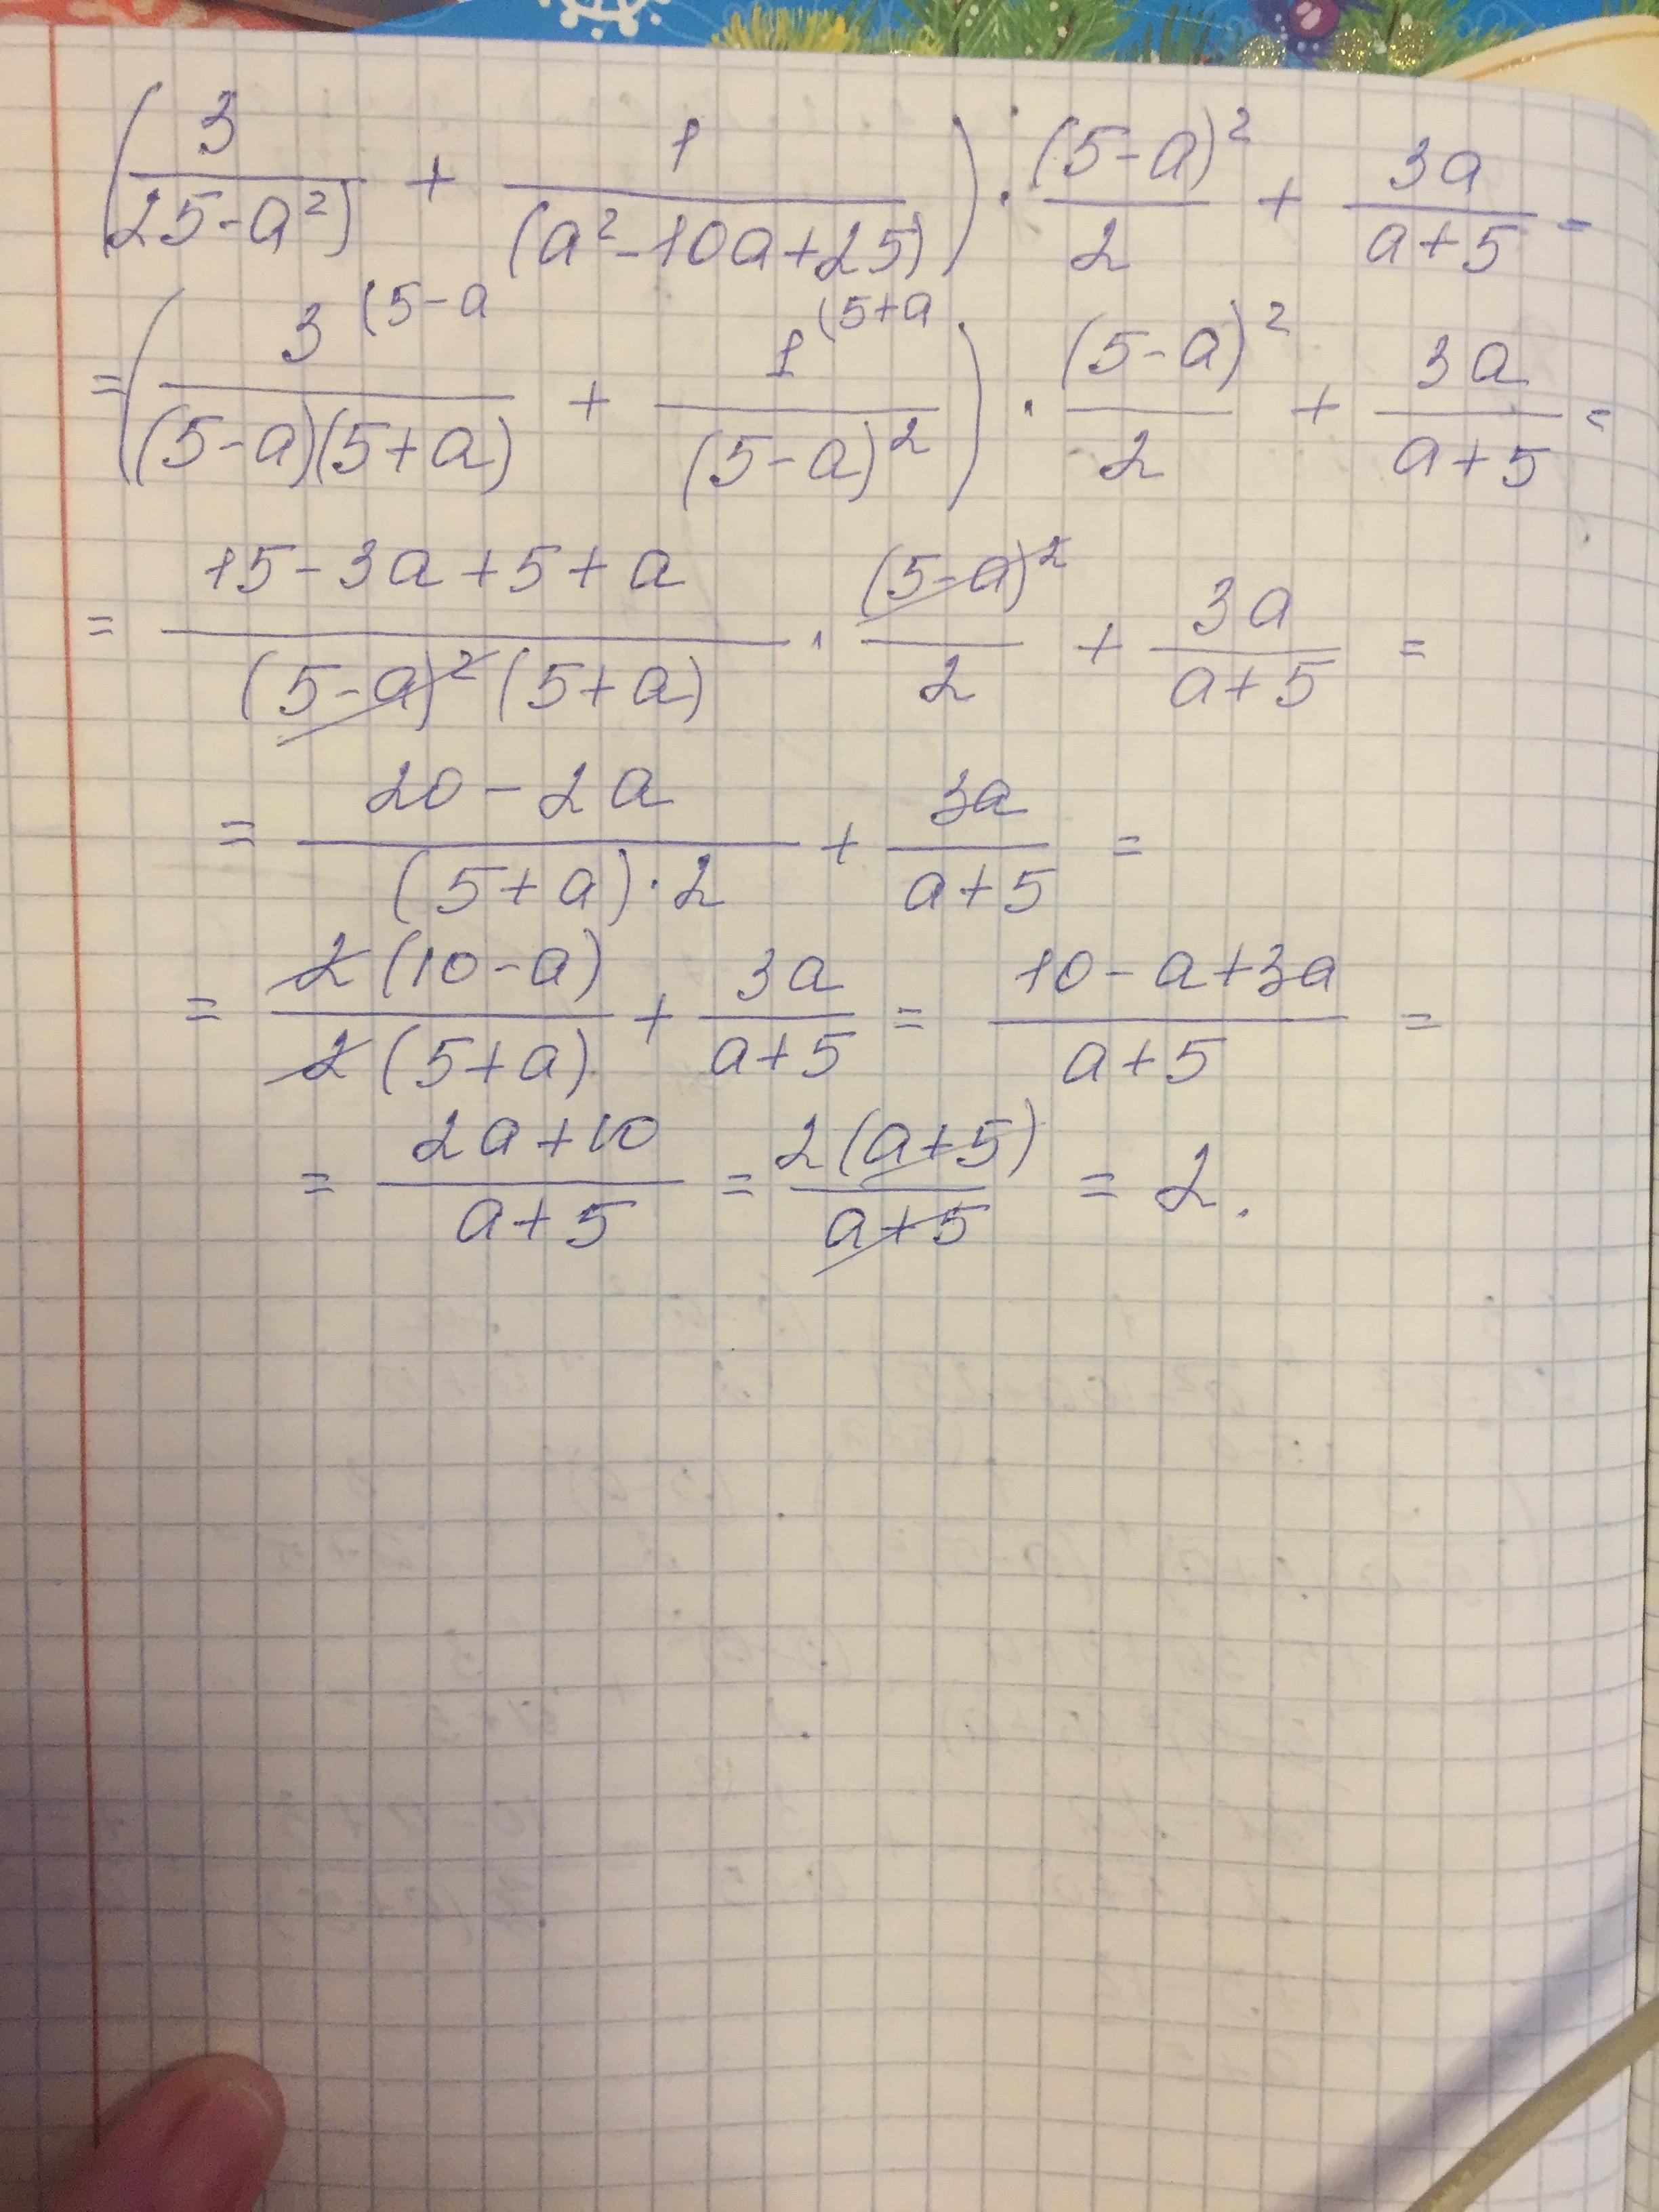 (3/(25-a²) + 1/(a²-10a+25)) · (5-a)²/2 + 3a/(a+5) =
= (3 (5-a / (5-a)(5+a) + 1 (5+a / (5-a)²) · (5-a)²/2 + 3a/(a+5) =
= (15-3a+5+a)/((5-a)²(5+a)) · (5-a)²/2 + 3a/(a+5) =
= (20-2a)/((5+a)·2) + 3a/(a+5) =
= 2(10-a)/(2(5+a)) + 3a/(a+5) = (10-a+3a)/(a+5) =
= (2a+10)/(a+5) = 2(a+5)/(a+5) = 2.